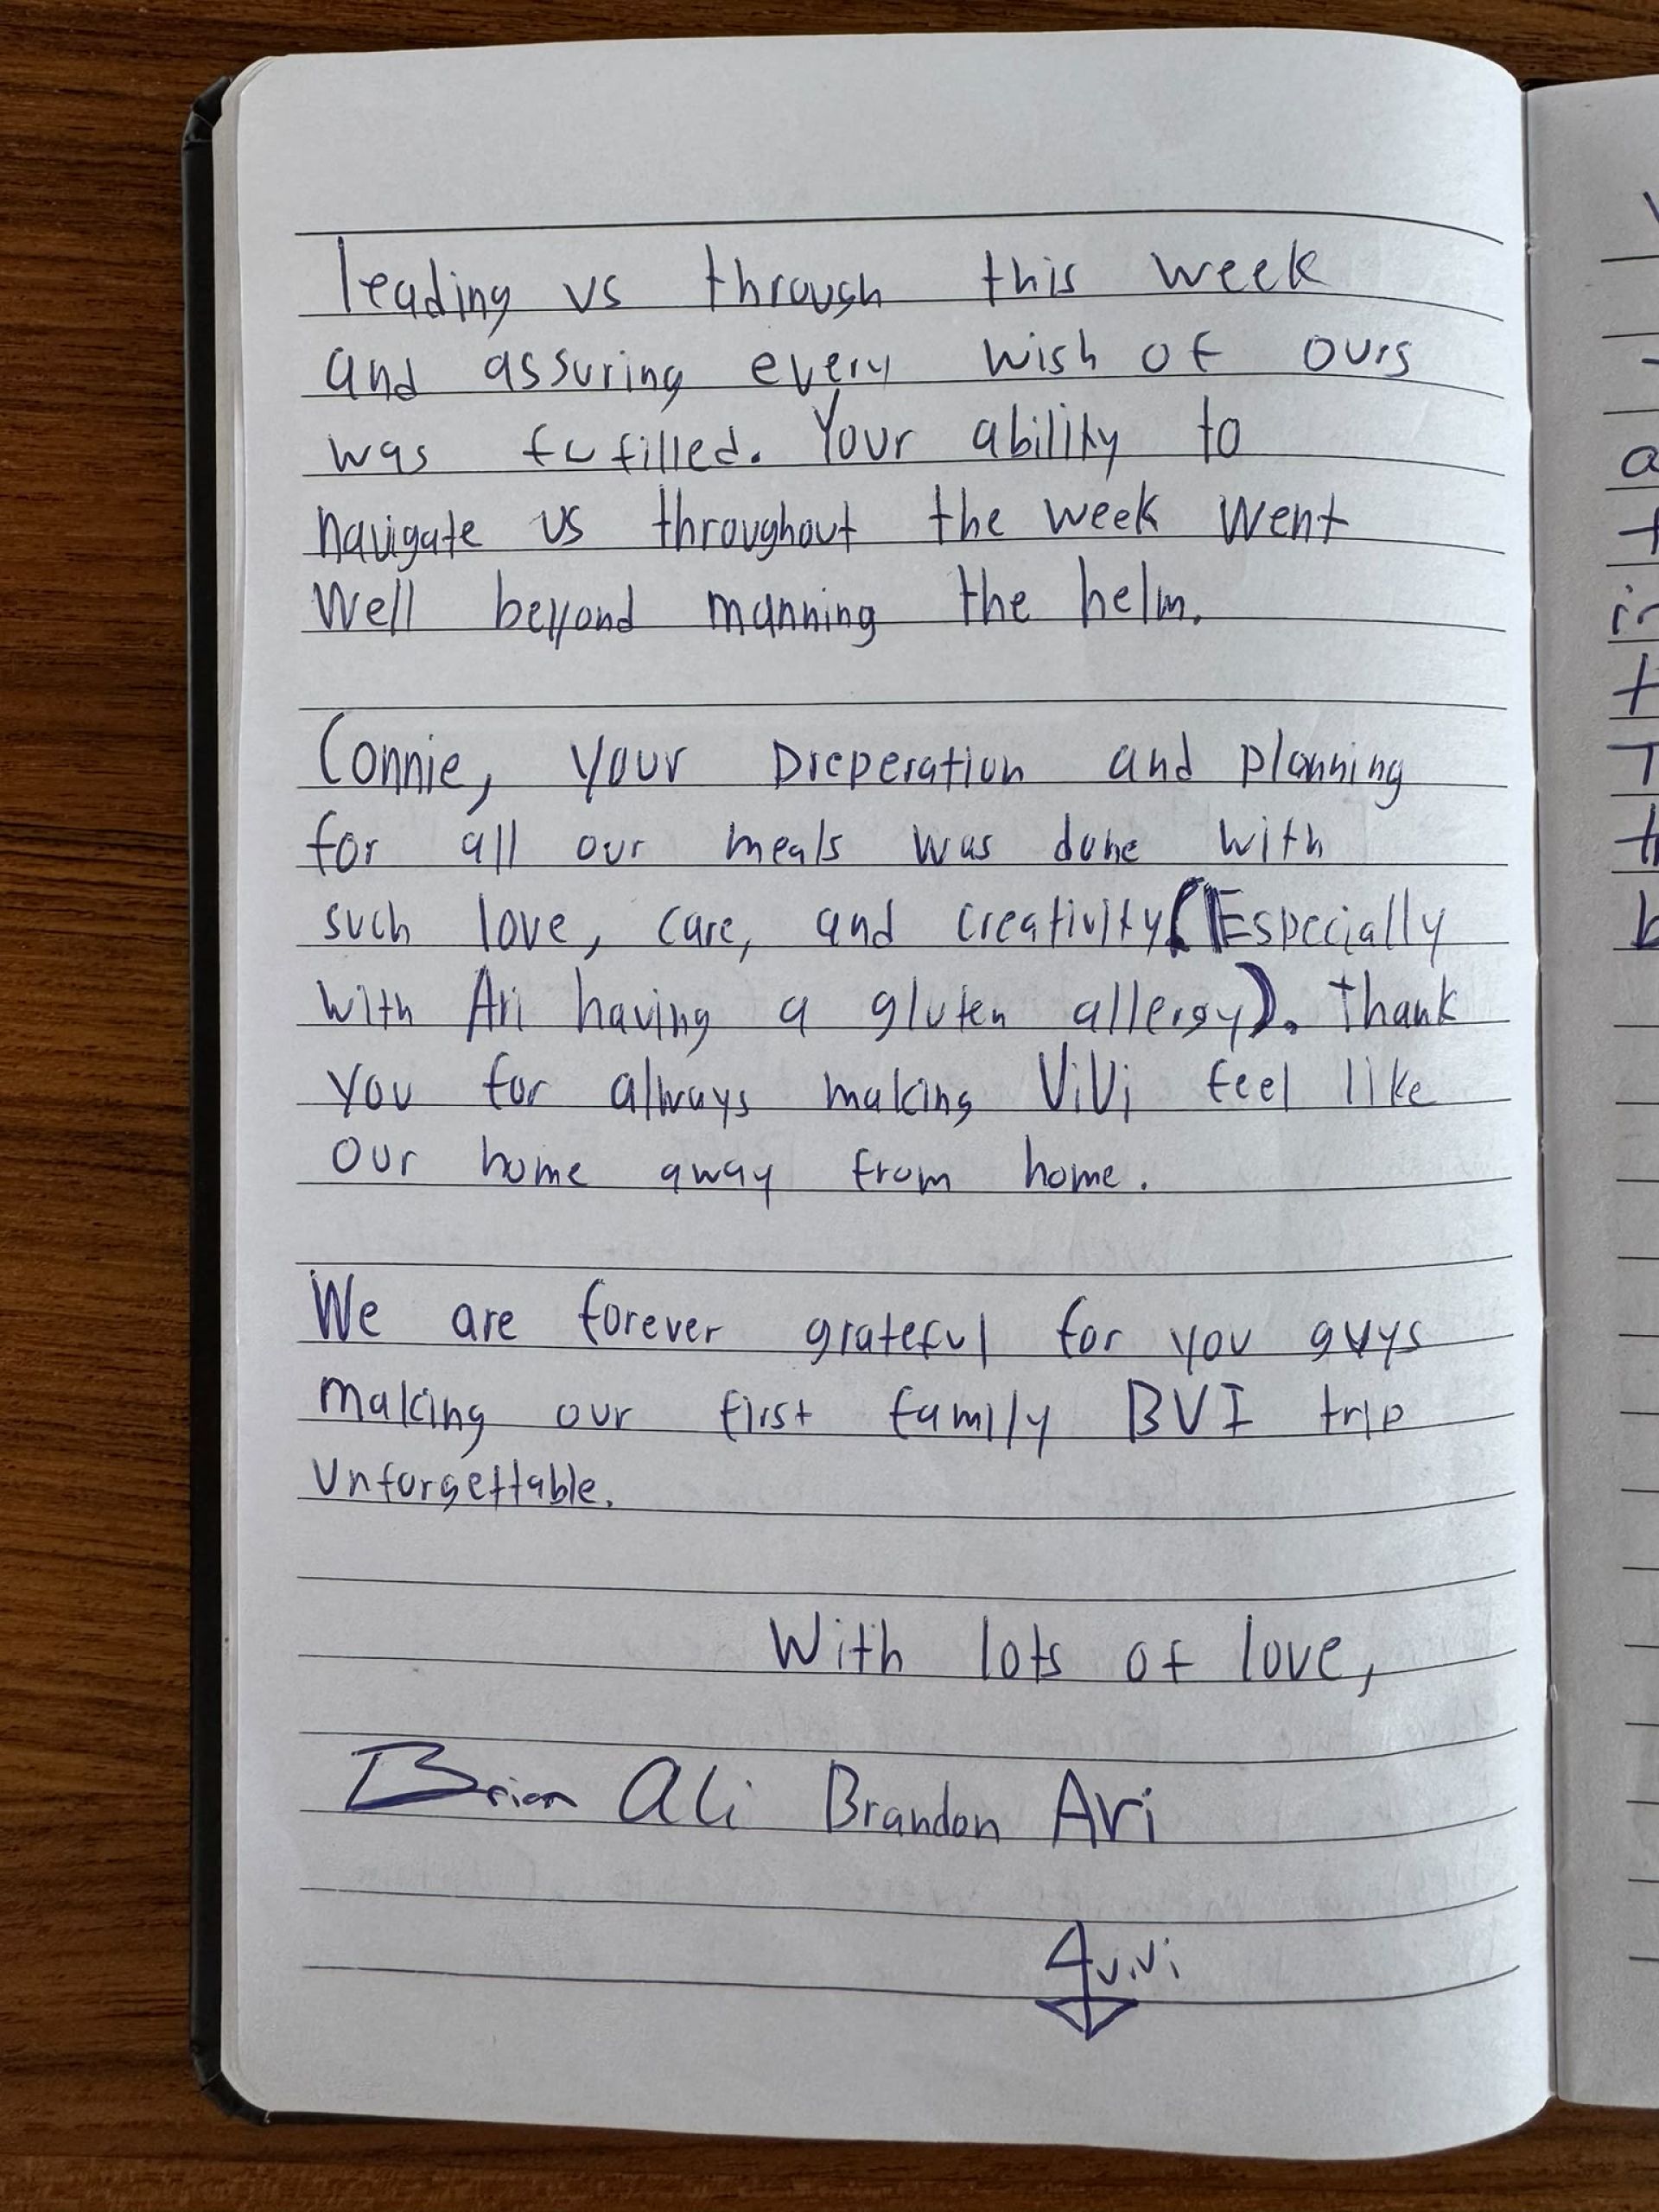 leading us through this week
and assuring every wish of ours
was fufilled. Your ability to
navigate us throughout the week went
Well beyond manning the helm.
Connie, your preperation and planning
for all our meals was done with
such love, care, and creativity (Especially
with Ari having a gluten allergy). Thank
you for always making ViVi feel like
our home away from home.
We are forever grateful for you guys
making our first family BVI trip
Unforgettable.
With lots of love,
Brian Ali Brandon Ari
ViVi